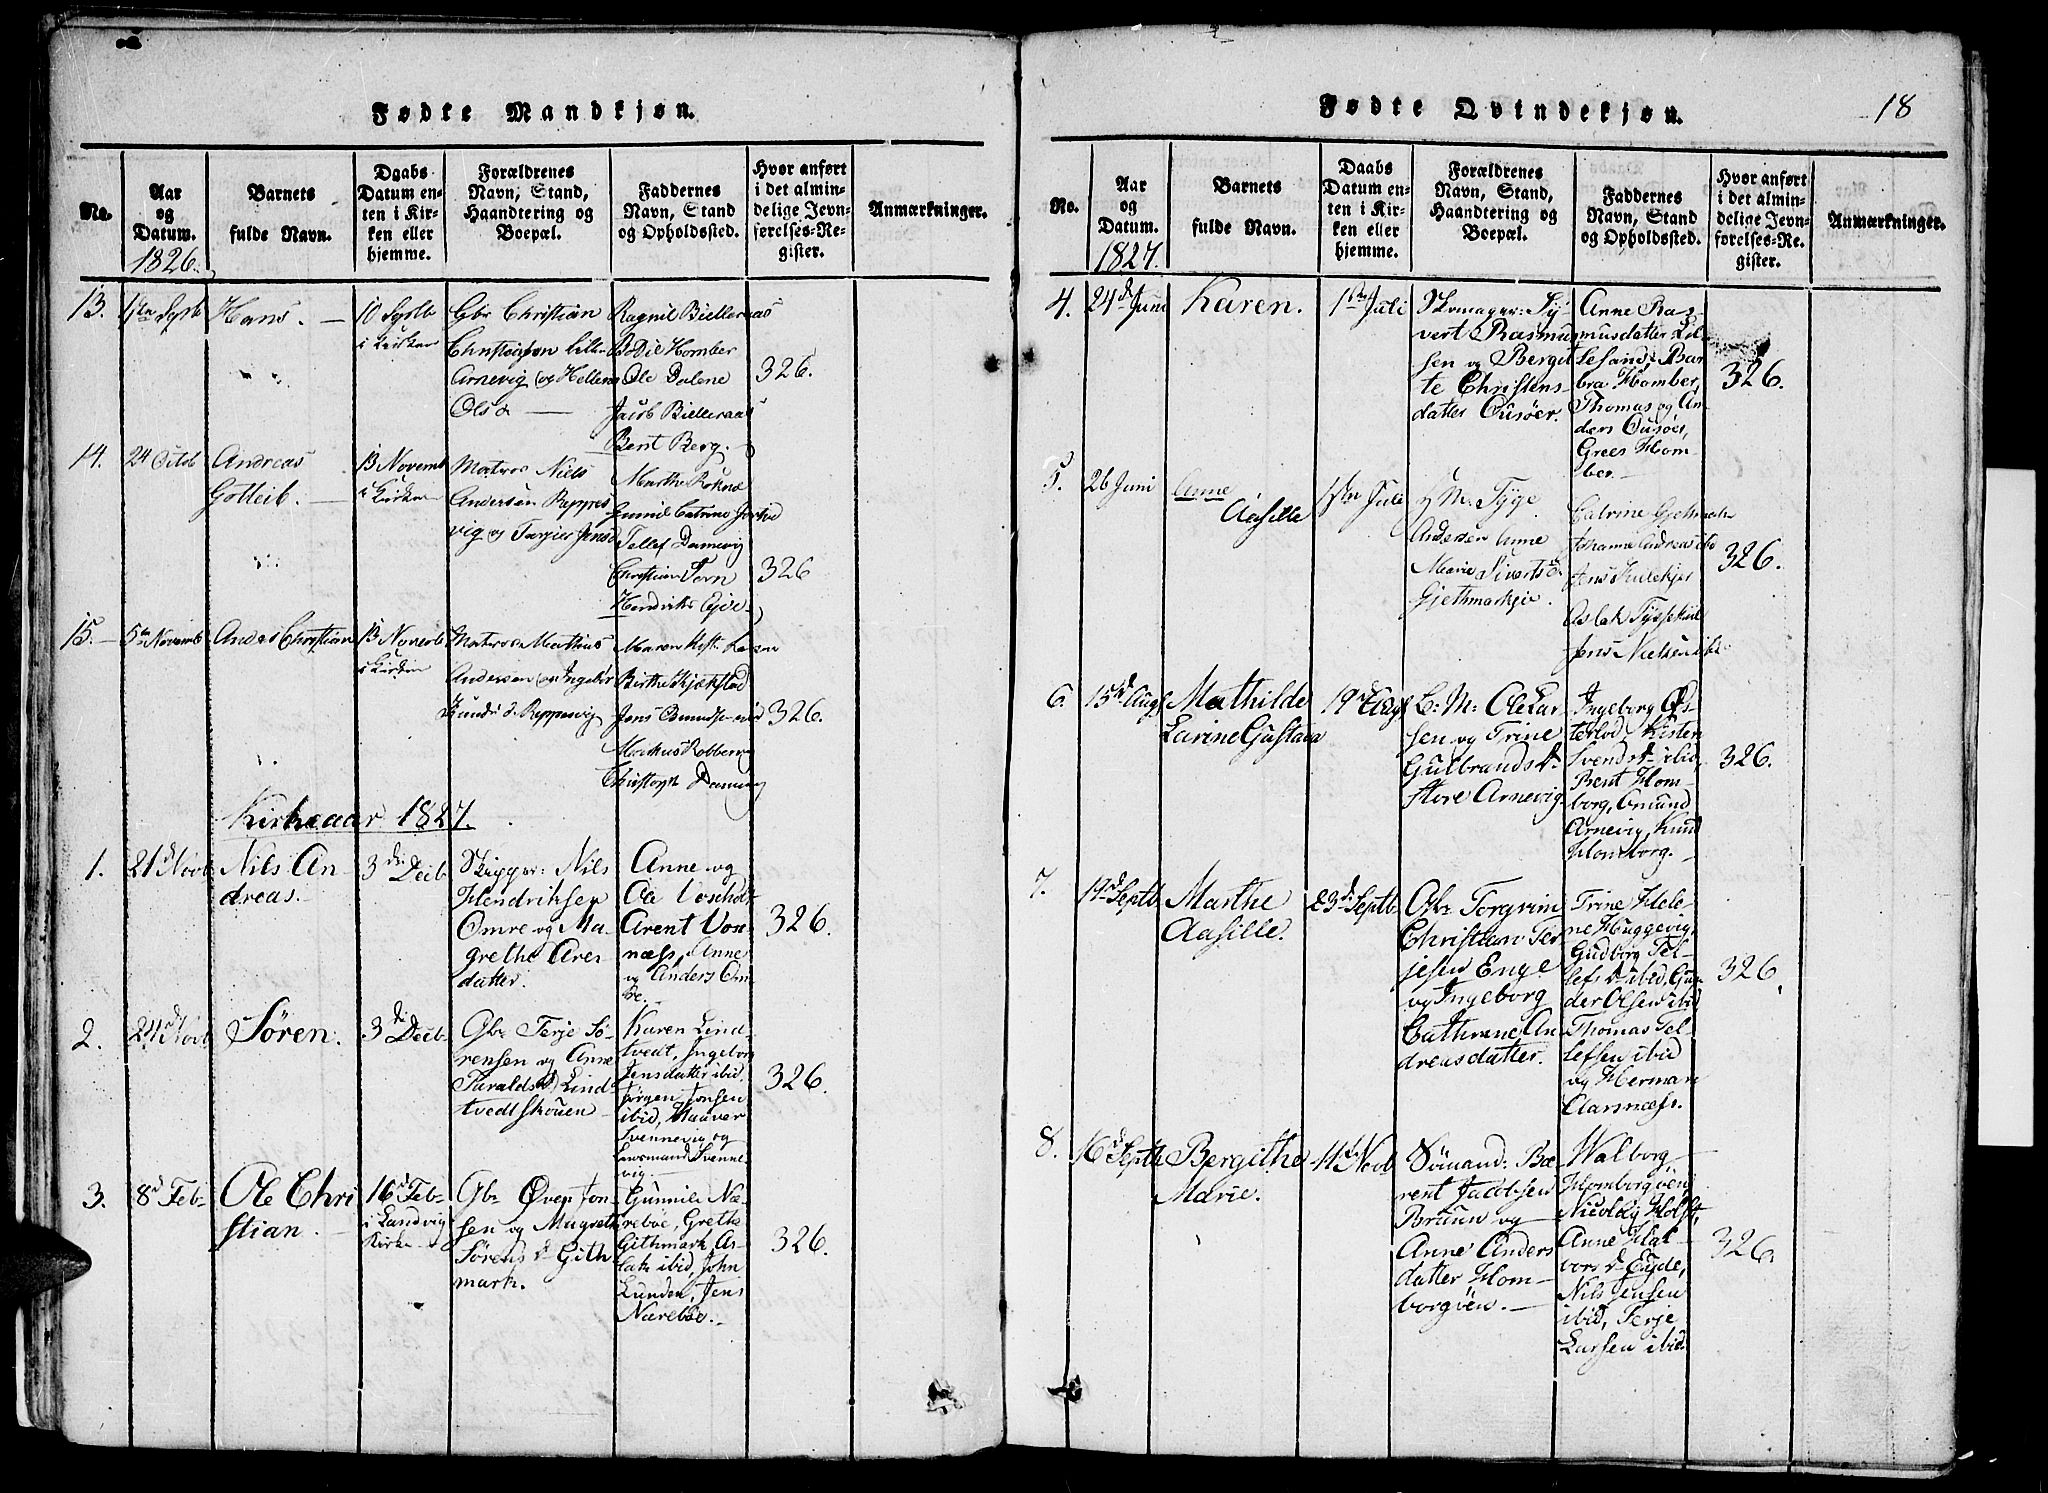 Fødte Mandkjøn.
No.
Aar
og
Datum.
1826.
Barnets
fulde Navn.
Daabs
Datum en-
ten i Kir-
ken eller
hjemme.
Forældrenes
Navn, Stand,
Haandtering og
Boepæl.
Faddernes
Navn, Stand
og Opholdssted.
Hvor anført
i det almin-
delige Jevn-
førelses-Re-
gister.
Anmærkninger.
13.
Hans.
i Kirken
Gbr Christian
Arnevig og Hellene
Ols d
Ragnil Bielleraas
Bodil Homber
Ole Dalene
Jacob Bielleraas
Bent Berg.
326.
14.
24 Octob
Andreas
Gotleib.
13 Novemb
i Kirken
Matros Niels
Andersen Reppes
vig og
Gunnil Catrine
Tellef Damevig
Christian
326
15.
5te Novemb
Anders Christian
13 Novemb
i Kirken
Matros Mathias
Andersen og Ingebor
d. Reppesvig
Maren
Birthe
Jens
Markus Robbersvig
Christoph
326.
Kirkeaar 1827.
1.
21 d Novb
Nils An-
dreas.
3 die Decb
Skipper: Nils
Hendriksen
Omre og Ma-
grethe Ares
datter.
Anne og
Ole Vosholt
Arent Vos-
næss, Anne
og Anders Om-
re.
326.
2.
24 d Novb
Søren.
3 die Decb
Gbr Terje Sø-
rensen og Anne
Taralds d Lind-
tvedtskouen
Karen Lind-
tvedt, Ingeborg
Jensdatter ibid.
Jørgen Jonsen
ibid, Haaver
Svennevig og
Svenne-
vig.
326.
3.
8 d Feb
Ole Chri
stian.
16 d Feb
i Landvig
Kirke
Gbr Øven Jon-
sen og Magrethe
Sørens d Gith-
mark.
Gunnile Næ-
rebøe, Grethe
Githmark, As-
lak ibid, John
Lunden, Jens
Nærebøe.
326.
Fødte Qvindekjøn.
18
No.
Aar
og
Datum.
1827.
Barnets
fulde Navn.
Daabs
Datum en-
ten i Kir-
ken eller
hjemme.
Forældrenes
Navn, Stand,
Haandtering og
Boepæl.
Faddernes
Navn, Stand
og Opholdssted.
Hvor anført
i det almin-
delige Jevn-
førelses-Re-
gister.
Anmærkninger.
4.
24 d Juni
Karen.
1ste Juli
Skomager: Sy-
vert Rasmus-
sen og Bergit-
te Christens-
datter Ousøer.
Anne Ras-
musdatter Lil-
lesand, Bar
bra Homber,
Thomas og An-
ders Ousøer,
Grees Hom-
ber.
326.
5.
26 Juni
Anne
Aasille
1ste Juli
G. M. Tyge
Andersen Anne
Marie Siverts d
Catrine
Johanne Andreas ibd
Jens
Aslak
Jens Nielsen ibd
326.
6.
15 d Aug
Mathilde
Larine Gustava
19 d Aug
B: M: Ole Lar
sen og Trine
Gulbrands d
store Arnevig
Ingeborg Øs-
terlod, Kisten
Svends d ibid,
Bent Hom-
borg, Omund
Arnevig, Knud
Homborg.
326.
7.
17 d Septb
Marthe
Aasille.
23 d Septb
Gbr Torgrim
Christian Ter
jesen Enge
og Ingeborg
Cathrine An
dreasdatter.
Trine Hele-
ne Huggevig,
Gudborg Tel-
lefs d ibid, Gun
der Olsen ibid
Thomas Tel-
lefsen ibid
og Herman
Claresnæss.
326.
8.
16 d Septb
Bergithe
Marie.
11 d Novb
Sømand: Be
rent Jacobsen
Bruun og
Anne Anders
datter Hom-
borgøen.
Walborg
Homborgøen,
Nicolay Holst,
Anne Hal-
vors d Eyde,
Nils Jensen
ibid, Terje
Larsen ibid
326.